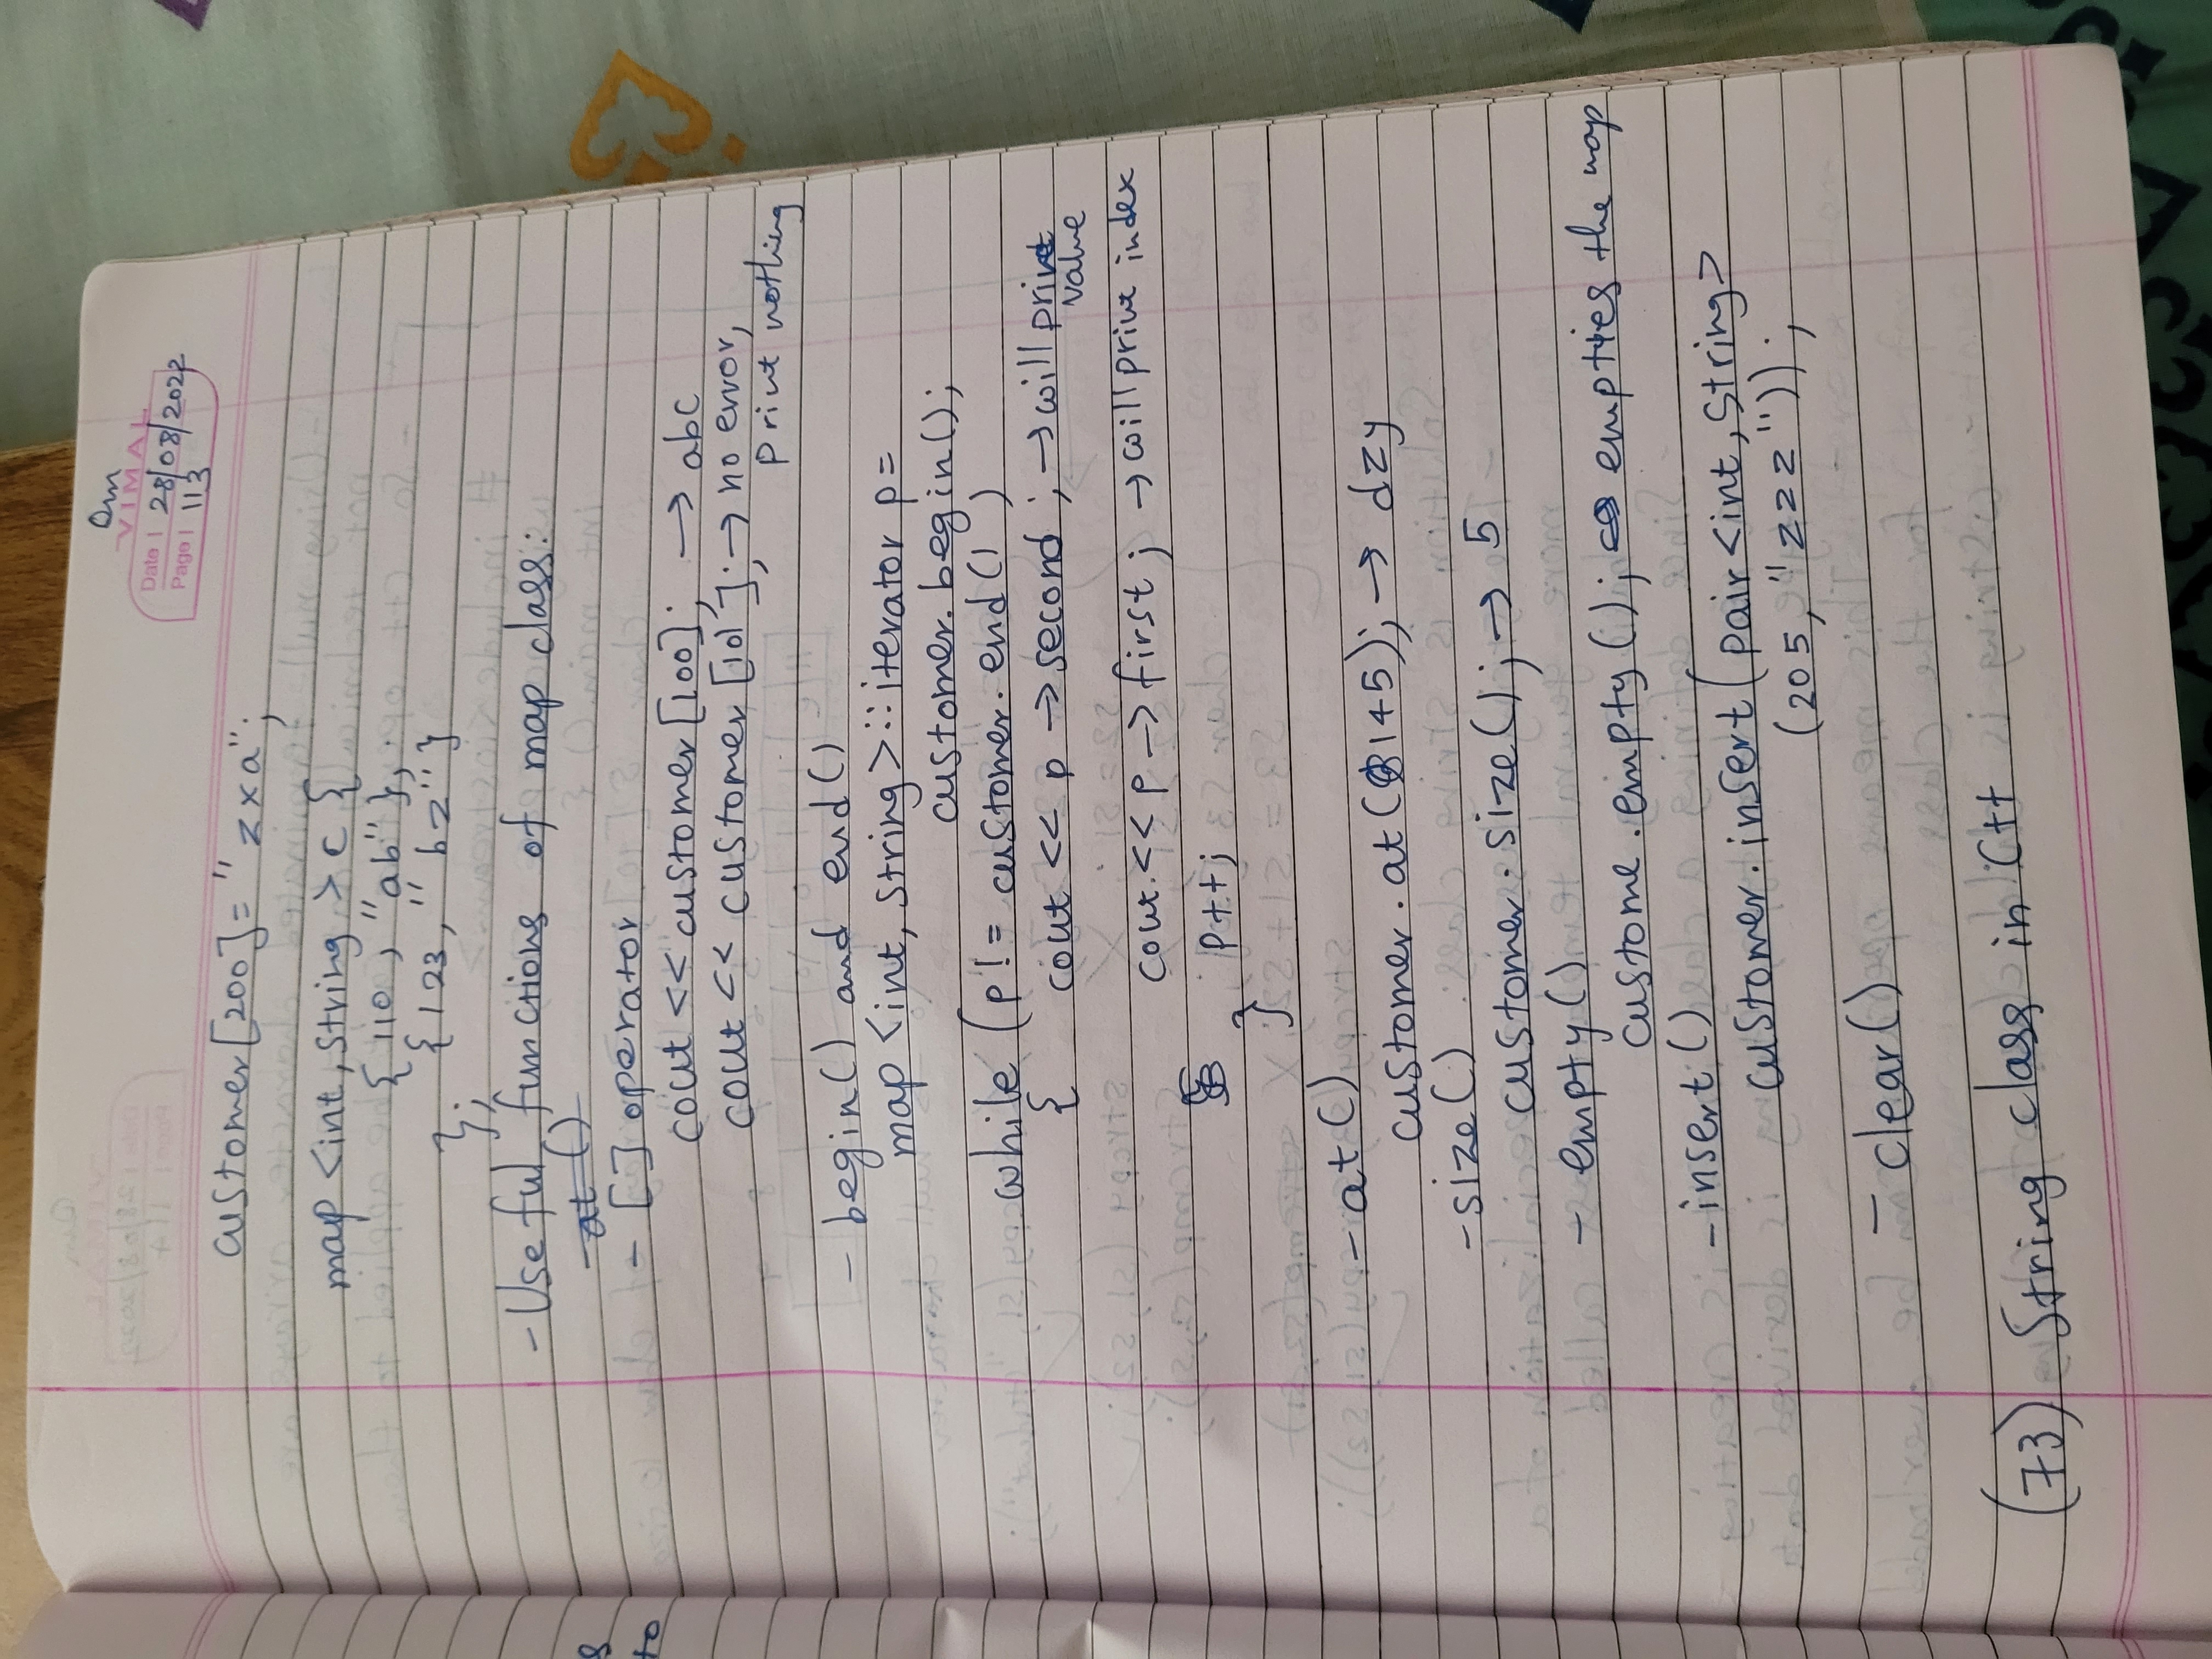 Om
VIMAL
Date 28/08/2022
Page 113
customer[200]= "zxa";
map <int, string > c {
{110, "ab"},
{123, "bz"}
};
- Useful functions of map class:
at ()
- [] operator
cout << customer[100]; → abc
cout << customer [101]; → no error,
print nothing
- begin() and end()
map <int, string>::iterator p=
customer.begin();
while (p!= customer.end() )
{ cout << p → second ; → will print
value
cout << p → first ; → will print index
p++;
}
- at ()
customer.at(145); → dzy
- size()
customer.size(); → 5
- empty()
custome.empty(); empties the map
- insert()
customer.insert(pair<int, string>
(205, "zzz"));
- clear()
(73) String class in C++
s
to